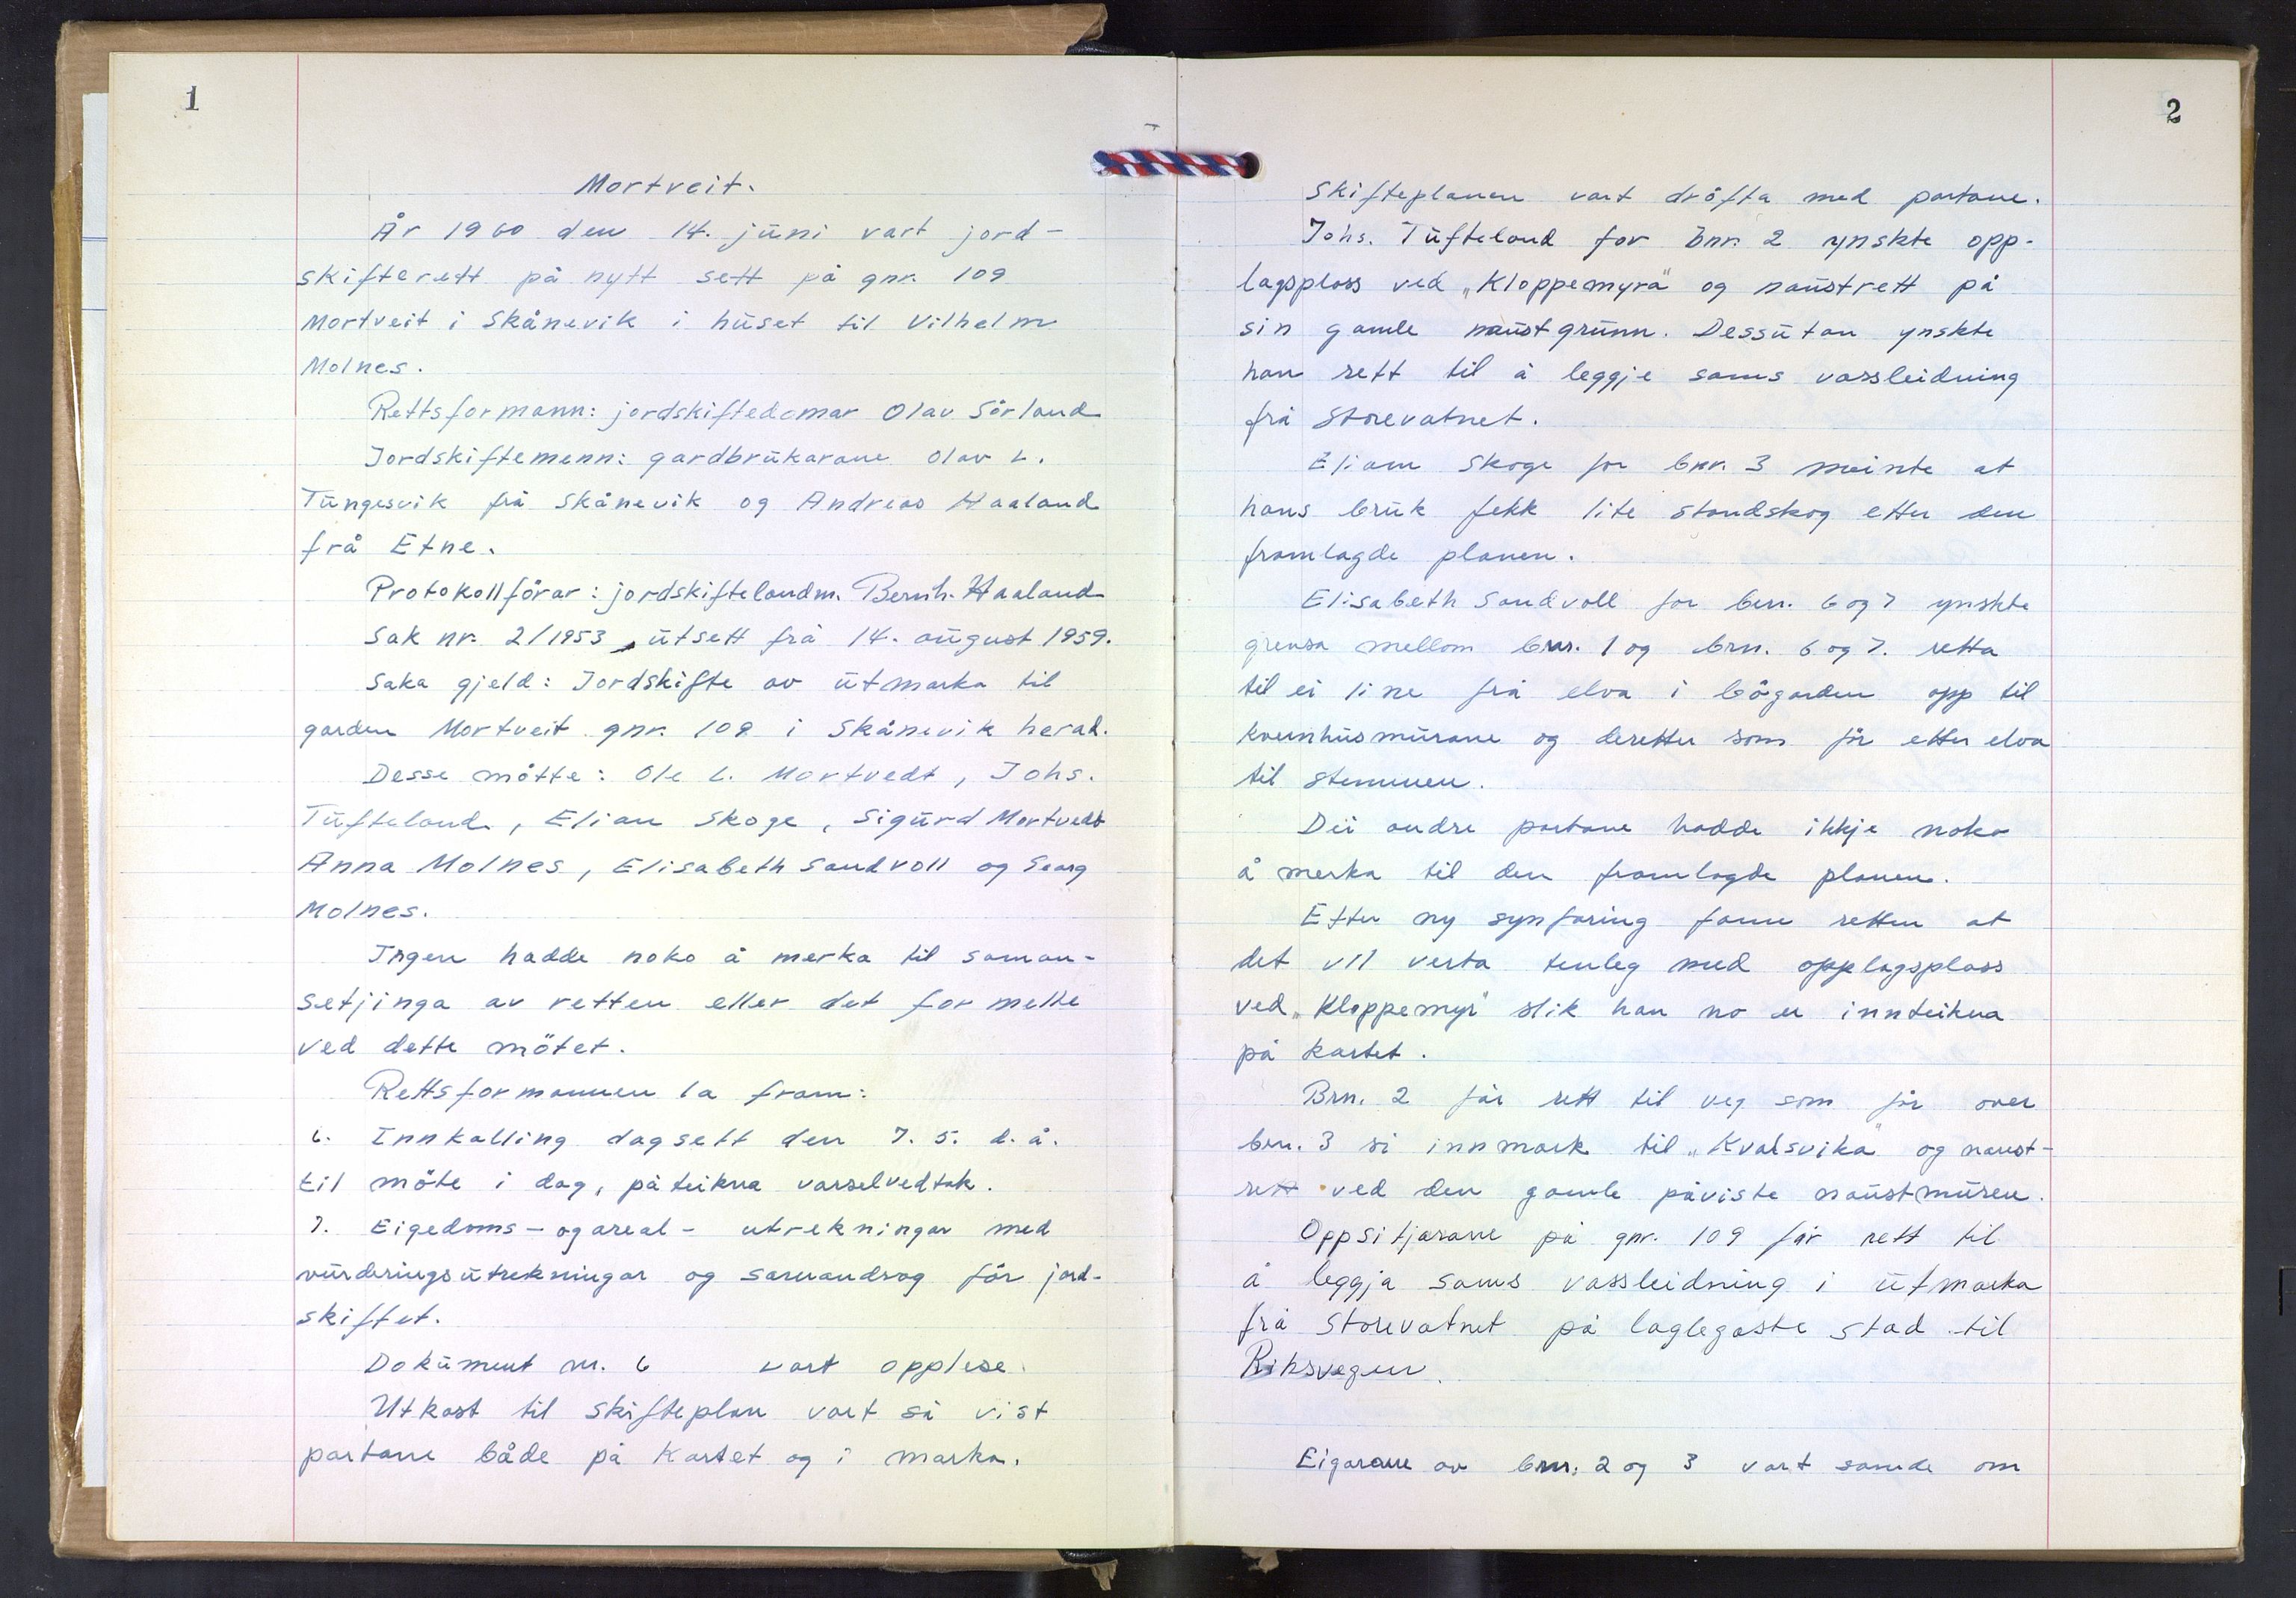 1
Mortveit.
År 1960 den 14. juni vart jord-
skifterett på nytt sett på gnr. 109
Mortveit i Skånevik i huset til Vilhelm
Molnes.
Rettsformann: jordskiftedomar Olav Sörland
Jordskiftemenn: gardbrukarane Olav L.
Tungesvik frå Skånevik og Andreas Haaland
frå Etne.
Protokollförar: jordskiftelandm. Bernh. Haaland
Sak nr. 2/1953, utsett frå 14. august 1959.
Saka gjeld: Jordskifte av utmarka til
garden Mortveit gnr. 109 i Skånevik herad.
Desse mötte: Ole L. Mortvedt, Johs.
Tufteland, Eliam Skoge, Sigurd Mortvedt
Anna Molnes, Elisabeth Sandvoll og Georg
Molnes.
Ingen hadde noko å merka til saman-
setjinga av retten eller det formelle
ved dette mötet.
Rettsformannen la fram:
6. Innkalling dagsett den 7. 5. d.å.
til möte i dag, påteikna varselvedtak.
7. Eigedoms- og areal- utrekningar med
vurderingsutrekningar og samandrag för jord-
skiftet.
Dokument nr. 6 vart opplese.
Utkast til skifteplan vart så vist
partane både på kartet og i marka.
2
Skifteplanen vart dröfta med partane.
Johs. Tufteland for bnr. 2 ynskte opp-
lagsplass ved „Kloppemyra" og naustrett på
sin gamle naustgrunn. Dessutan ynskte
han rett til å leggje sams vassleidning
frå Storevatnet.
Eliam Skoge for bnr. 3 meinte at
hans bruk fekk lite standskog etter den
framlagde planen.
Elisabeth Sandvoll for brn. 6 og 7 ynskte
grensa mellom bnr. 1 og brn. 6 og 7. retta
til ei line frå elva i bögarden opp til
kvernhusmurane og deretter som för etter elva
til stemmen.
Dei andre partane hadde ikkje noko
å merka til den framlagde planen.
Etter ny synfaring fann retten at
det vil verta tenleg med opplagsplass
ved „Kloppemyr" slik han no er innteikna
på kartet.
Brn. 2 får rett til veg som för over
brn. 3 si innmark til „Kvalsvika" og naust-
rett ved den gamle påviste naustmuren.
Oppsitjarane på gnr. 109 får rett til
å leggja sams vassleidning i utmarka
frå Storevatnet på laglegaste stad til
Riksvegen.
Eigarane av bnr. 2 og 3 vart samde om